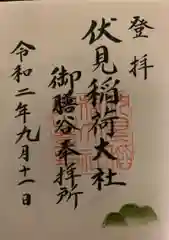 登拝
伏見稲荷大社
御膳谷奉拝所
令和二年九月十一日